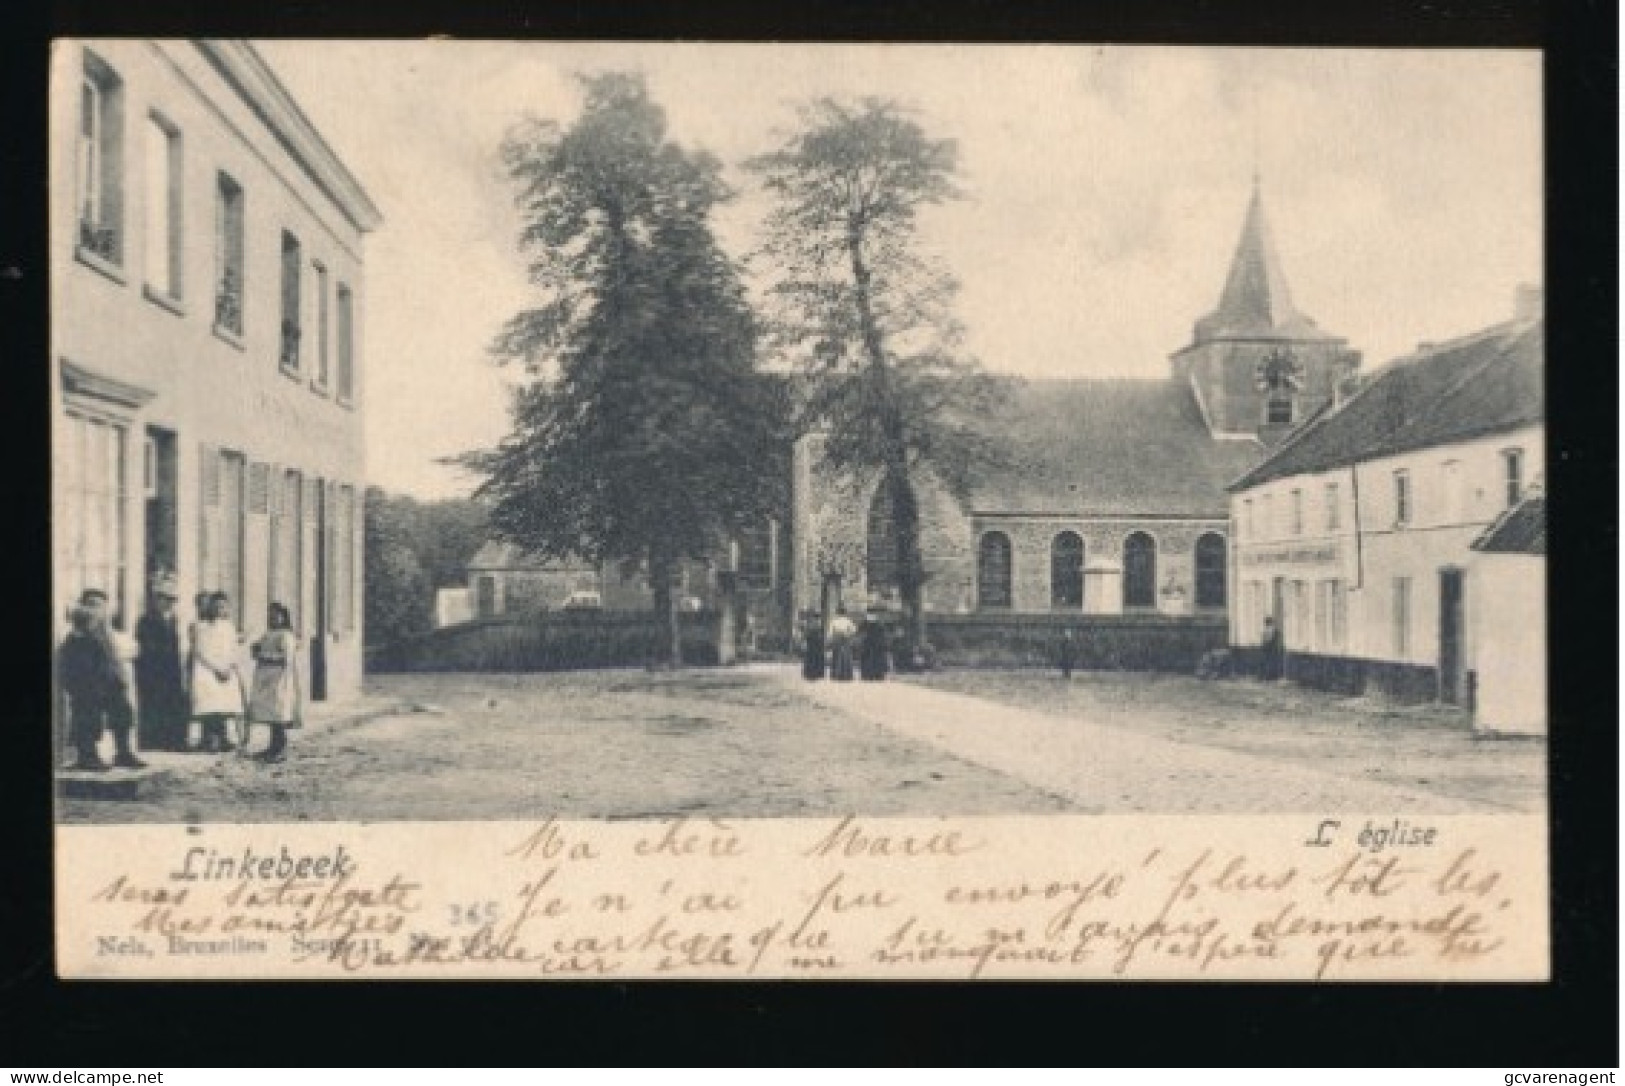 Linkebeek
L'église
Ma chère Marie
Je n'ai pu envoyé plus tôt les
cartes que tu m'avais demandé
car elle me manquait j'espère que tu
seras satisfaite
Mes amitiés
Mathilde
365
Nels, Bruxelles Serie 11
delcampe.net
gcvarenagent